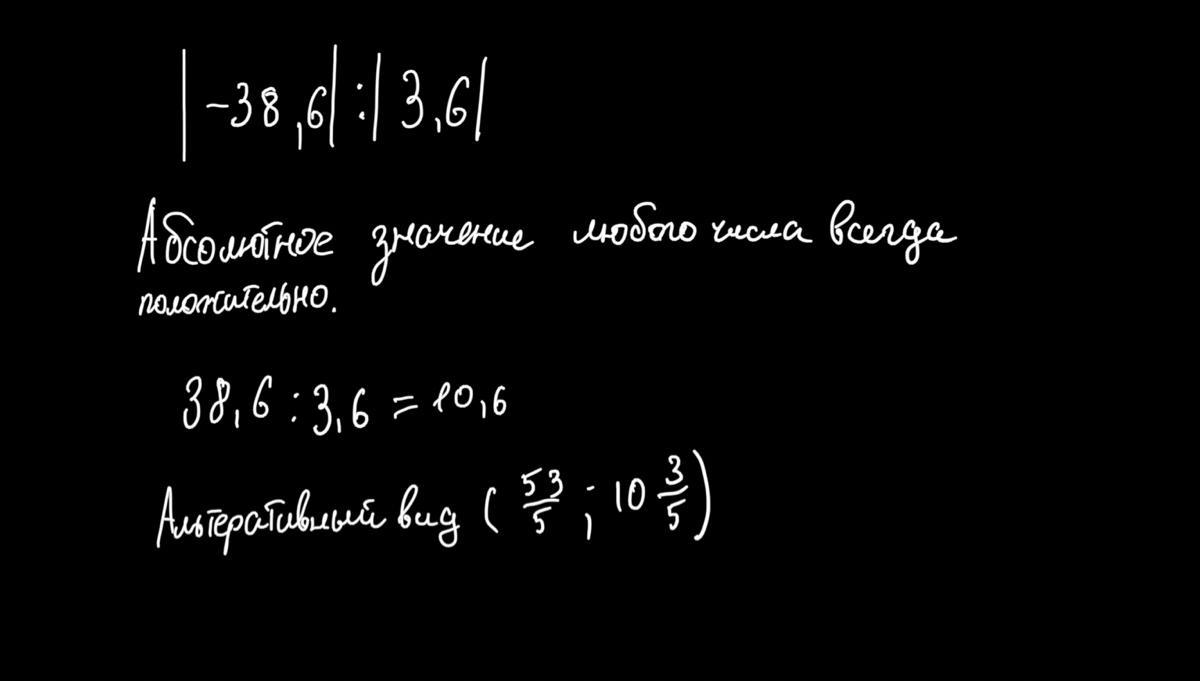 |-38,6| : |3,6|
Абсолютное значение любого числа всегда
положительно.
38,6 : 3,6 = 10,6
Альтеративный вид ( 53/5 ; 10 3/5 )